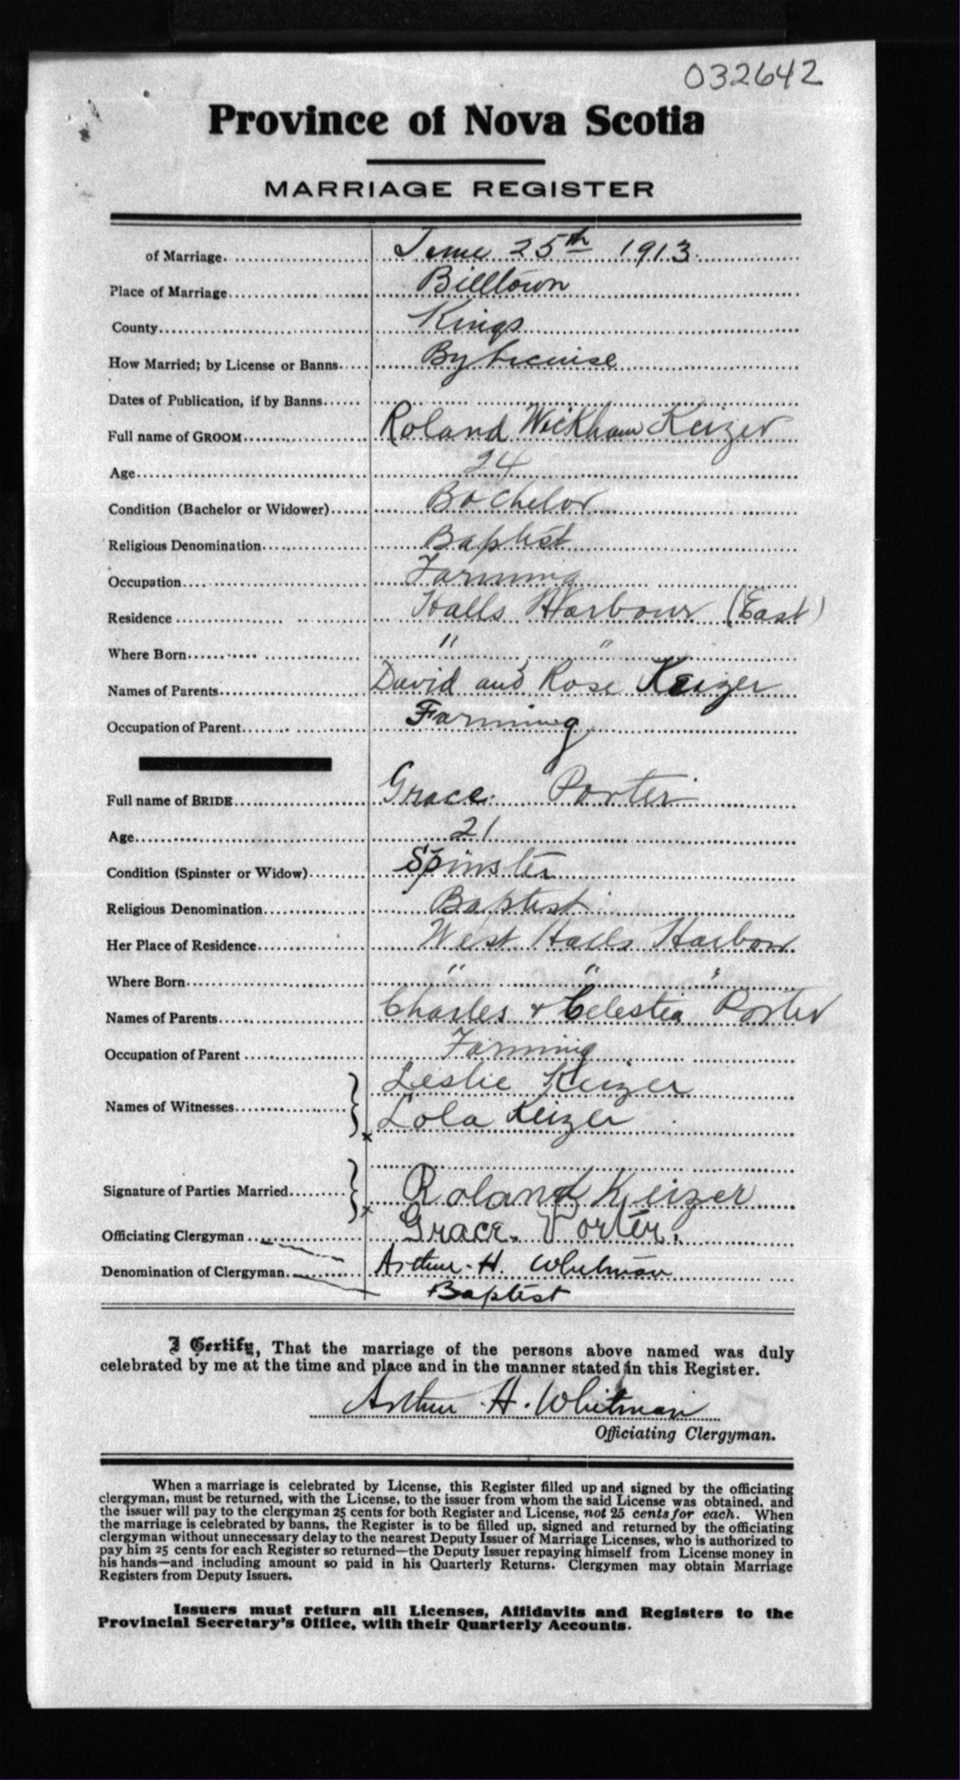 032642
Province of Nova Scotia
MARRIAGE REGISTER
of Marriage. June 25th 1913.
Place of Marriage Billtown
County Kings
How Married; by License or Banns By Licinise
Dates of Publication, if by Banns
Full name of GROOM Roland Wickham Keizer
Age 24
Condition (Bachelor or Widower) Bachelor
Religious Denomination Baptist
Occupation Farming
Residence Halls Harbour (East)
Where Born " "
Names of Parents David and Rose Keizer
Occupation of Parent Farming
Full name of BRIDE Grace Porter
Age 21
Condition (Spinster or Widow) Spinster
Religious Denomination Baptist
Her Place of Residence West Halls Harbour
Where Born " " "
Names of Parents Charles & Celestia Porter
Occupation of Parent Farming
Names of Witnesses Leslie Keizer
x Lola Keizer
Signature of Parties Married Roland Keizer
x Grace. Porter.
Officiating Clergyman Arthur. H. Whitman
Denomination of Clergyman Baptist
I Certify, That the marriage of the persons above named was duly
celebrated by me at the time and place and in the manner stated in this Register.
Arthur. H. Whitman
Officiating Clergyman.
When a marriage is celebrated by License, this Register filled up and signed by the officiating
clergyman, must be returned, with the License, to the issuer from whom the said License was obtained, and
the issuer will pay to the clergyman 25 cents for both Register and License, not 25 cents for each. When
the marriage is celebrated by banns, the Register is to be filled up, signed and returned by the officiating
clergyman without unnecessary delay to the nearest Deputy Issuer of Marriage Licenses, who is authorized to
pay him 25 cents for each Register so returned—the Deputy Issuer repaying himself from License money in
his hands—and including amount so paid in his Quarterly Returns. Clergymen may obtain Marriage
Registers from Deputy Issuers.
Issuers must return all Licenses, Affidavits and Registers to the
Provincial Secretary's Office, with their Quarterly Accounts.